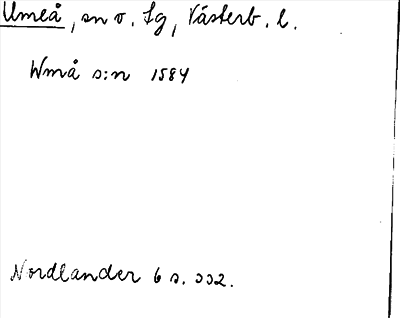 Umeå, sn v. lg, Västerb. l.
Wmå s:n 1584
Nordlander 6 s. 332.